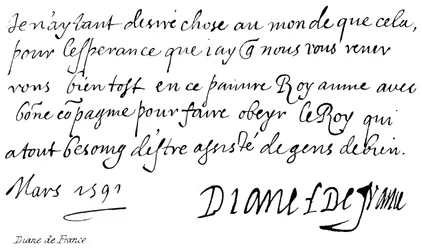 Je n'ay tant desiré chose au monde que cela,
pour l'esperance que i'ay q̃ nous vous reuer
rons bien tost en ce pauure Royaume auec
bõne cõpagnie pour faire obeyr le Roy qui
a tout besoing d'estre assisté de gens de bien.
Mars 1591
DIANE L DE France
Diane de France